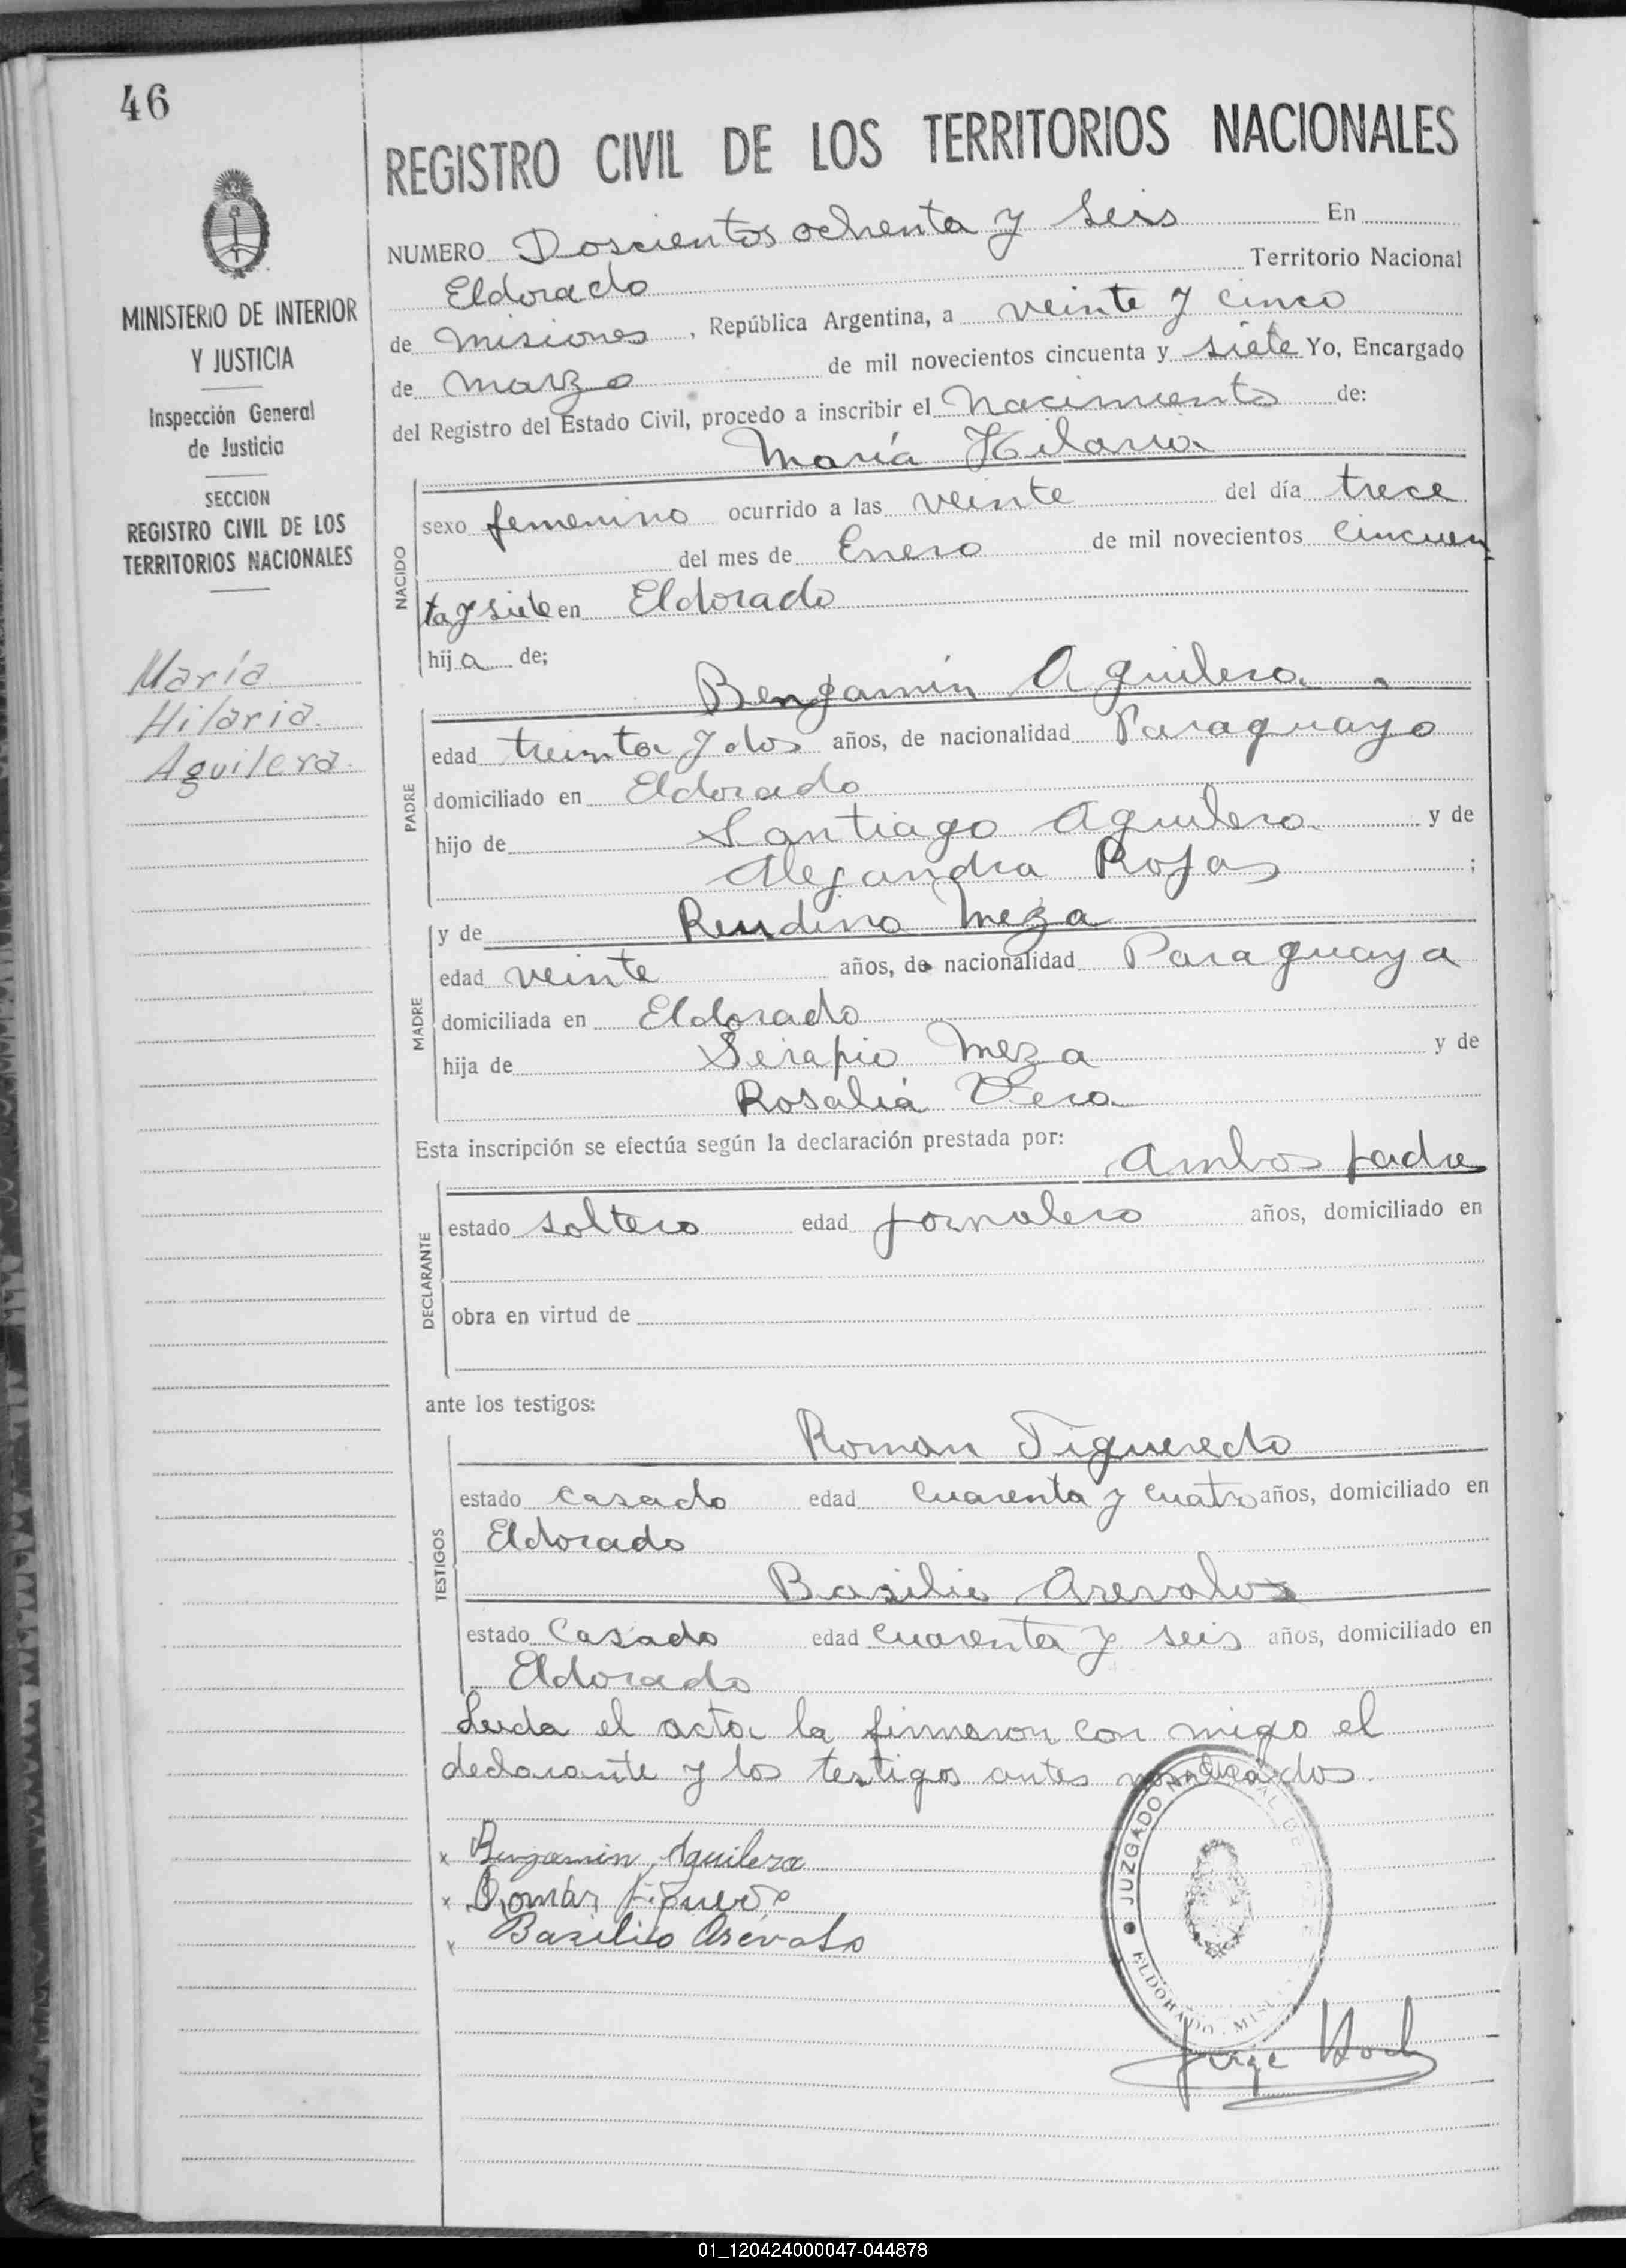 46
REGISTRO CIVIL DE LOS TERRITORIOS NACIONALES
MINISTERIO DE INTERIOR
Y JUSTICIA
Inspección General
de Justicia
SECCION
REGISTRO CIVIL DE LOS
TERRITORIOS NACIONALES
María
Hilaria
Aguilera
NUMERO Doscientos ochenta y seis En
Eldorado Territorio Nacional
de Misiones, República Argentina, a veinte y cinco
de marzo de mil novecientos cincuenta y siete Yo, Encargado
del Registro del Estado Civil, procedo a inscribir el Nacimiento de:
María Hilaria
NACIDO
sexo femenino ocurrido a las veinte del día trece
del mes de Enero de mil novecientos cincuen
ta y siete en Eldorado
hija de;
Benjamín Aguilera
PADRE
edad treinta y dos años, de nacionalidad Paraguayo
domiciliado en Eldorado
hijo de Santiago Aguilera y de
Alejandra Rojas ;
y de Meza
MADRE
edad veinte años, de nacionalidad Paraguaya
domiciliada en Eldorado
hija de Serapio Meza y de
Rosalia Vera
Esta inscripción se efectúa según la declaración prestada por:
Ambos padre
DECLARANTE
estado soltero edad jornalero años, domiciliado en
obra en virtud de
ante los testigos:
Roman Figueredo
TESTIGOS
estado casado edad cuarenta y cuatro años, domiciliado en
Eldorado
Basilio Arevalos
estado Casado edad cuarenta y seis años, domiciliado en
Eldorado
Leida el acta la firmaron con migo el
declarante y los testigos antes
x Benjamin Aguilera
x Román
x Basilio Arévalo
JUZGADO
ELDORADO
Jorge
01_120424000047-044878